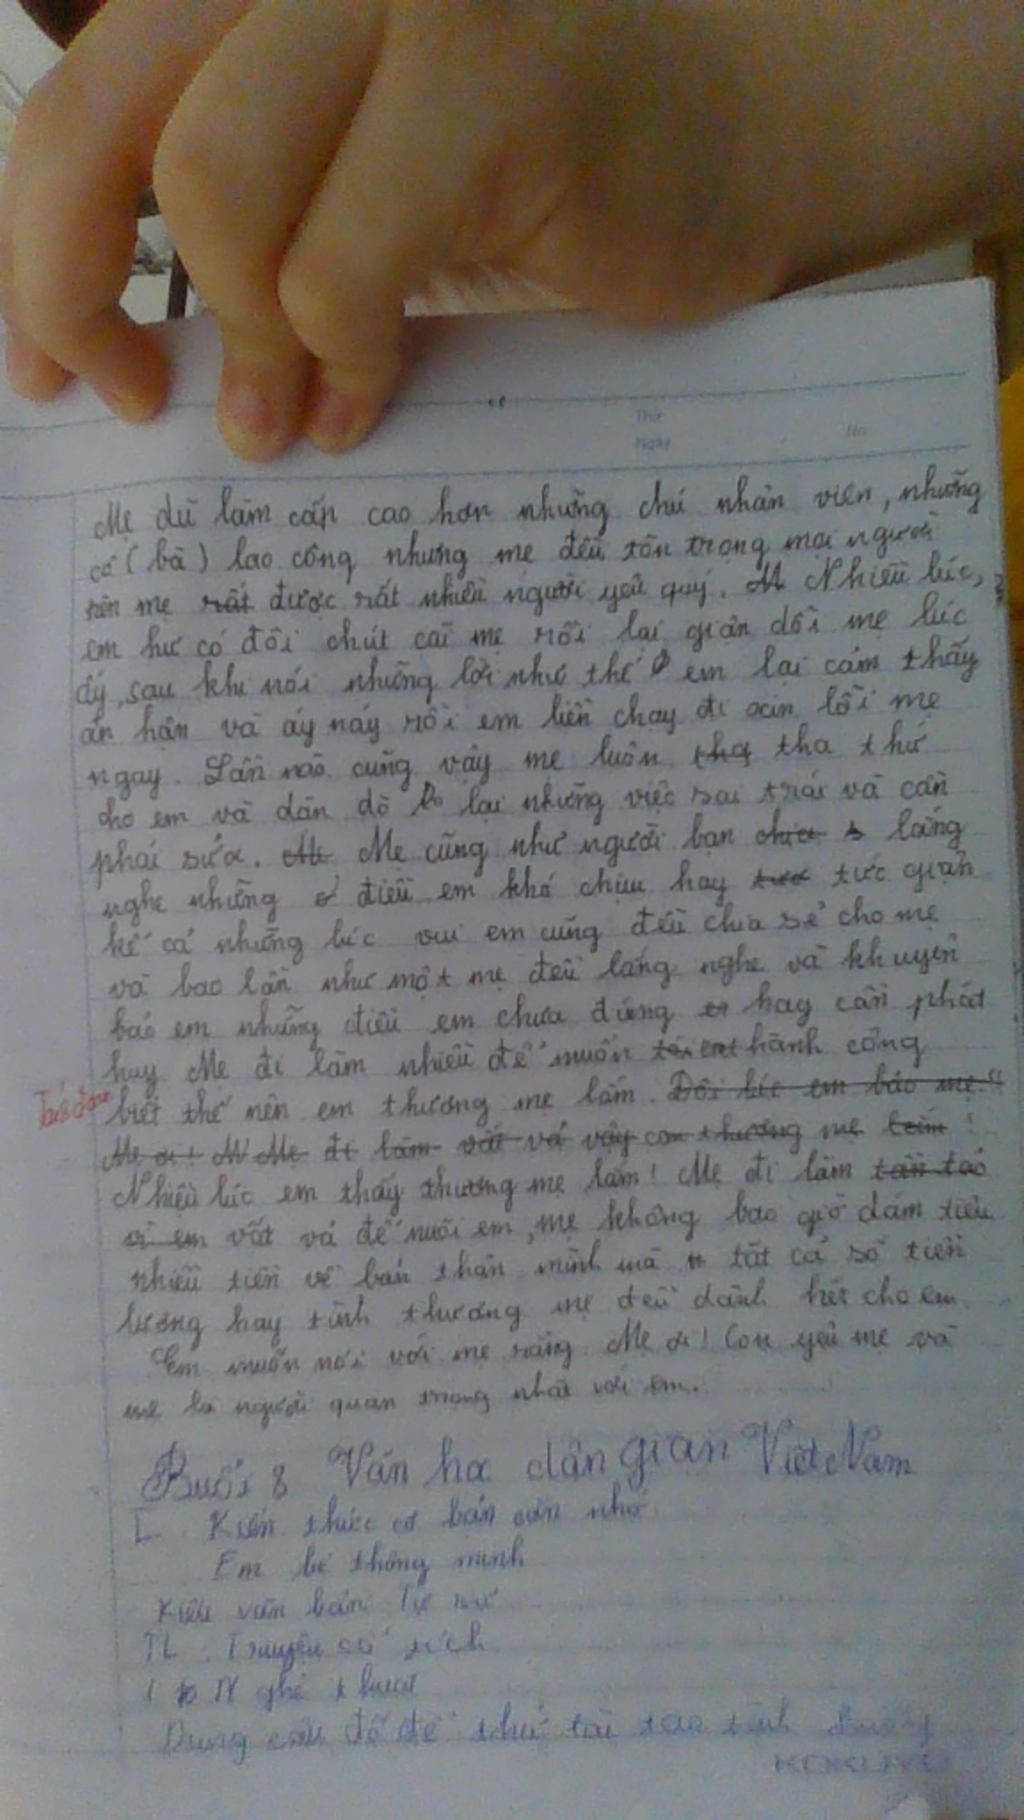 Thứ
Ngày No
Mẹ dù làm cấp cao hơn những chú nhân viên, những
cô (bà) lao công nhưng mẹ đều tôn trọng mọi người
nên mẹ rất được rất nhiều người yêu quý. M Nhiều lúc,
em hư có đôi chút cãi mẹ rồi lại giận dỗi mẹ lúc
ấy, sau khi nói những lời như thế em lại cảm thấy
ân hận và áy náy rồi em liền chạy đi xin lỗi mẹ
ngay. Lần nào cũng vậy mẹ luôn tha tha thứ
cho em và dặn dò lại những việc sai trái và cần
phải sửa. Mẹ cũng như người bạn lắng
nghe những điều em khó chịu hay tức giận
kể cả những lúc vui em cũng đều chia sẻ cho mẹ
và bao lần như một mẹ đều lắng nghe và khuyên
bảo em những điều em chưa đúng hay cần phát
huy Mẹ đi làm nhiều để muốn hành công
biết thế nên em thương mẹ lắm. Đôi lúc em bảo mẹ:"
Mẹ ơi! M Mẹ đi làm vất vả vậy con thương mẹ lắm!
Nhiều lúc em thấy thương mẹ lắm! Mẹ đi làm
vất vả để nuôi em, mẹ không bao giờ dám tiêu
nhiều tiền về bản thân mình mà tất cả số tiền
lương hay tình thương mẹ đều dành hết cho em.
Em muốn nói với mẹ rằng: Mẹ ơi! Con yêu mẹ và
mẹ là người quan trọng nhất với em.
Buổi 8 Văn học dân gian Việt Nam
I. Kiến thức cơ bản cần nhớ
Em bé thông minh
Kiểu văn bản: Tự sự
TL: Truyện cổ tích
N ghệ thuật
Dùng câu đố để thử tài tạo tình huống
KOKUYO